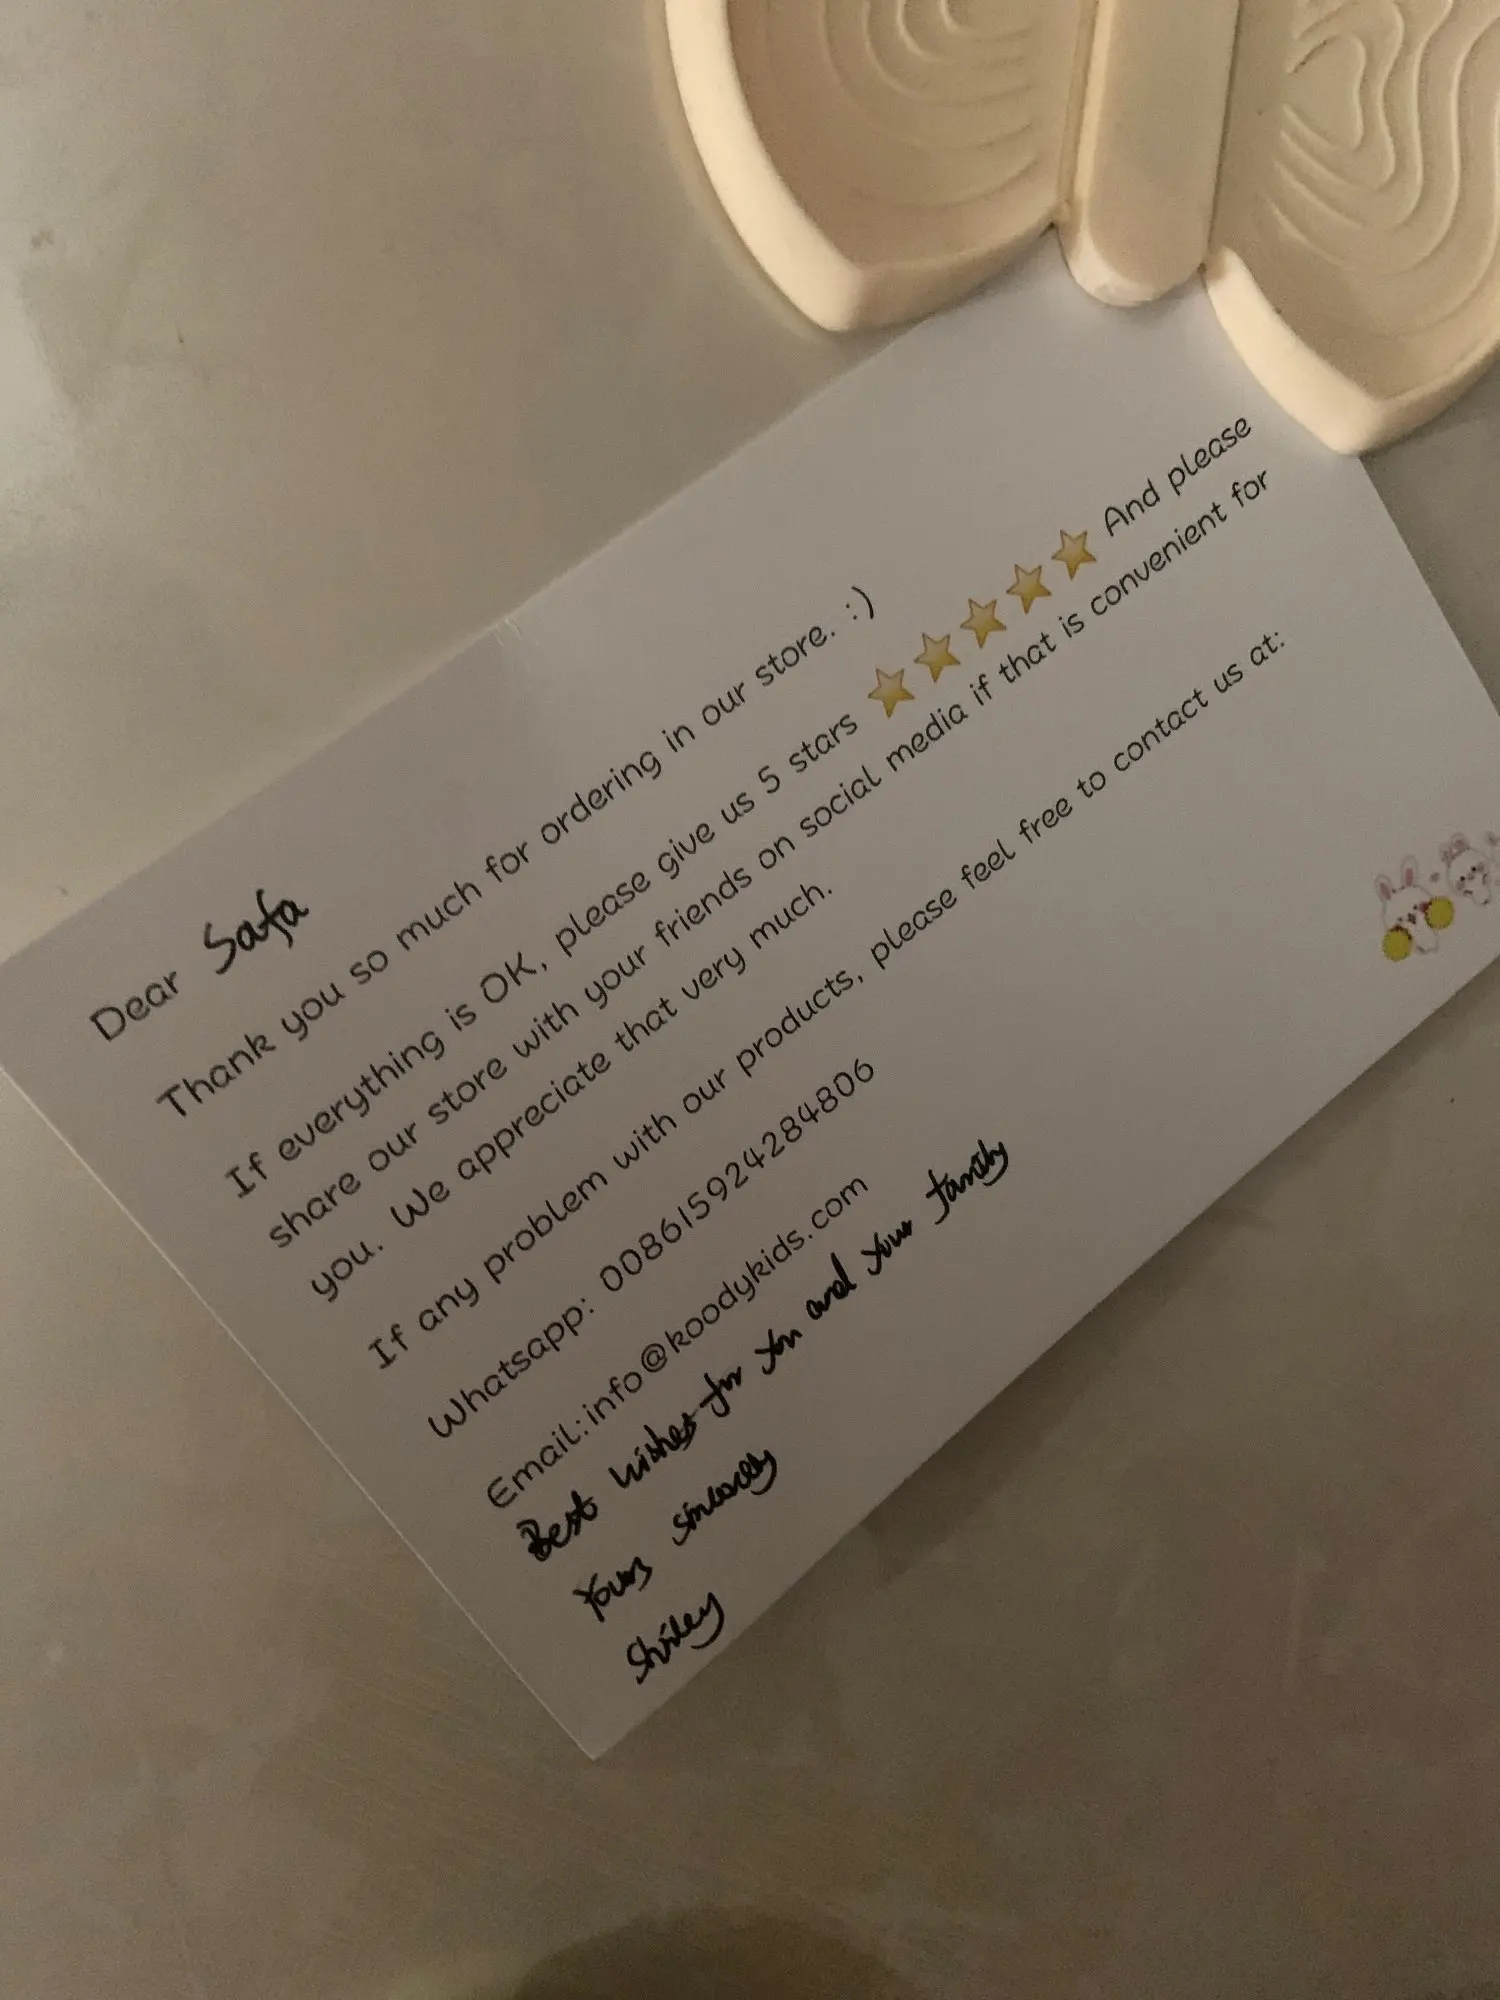 Dear Safa
Thank you so much for ordering in our store. :)
If everything is OK, please give us 5 stars ⭐⭐⭐⭐⭐ And please
share our store with your friends on social media if that is convenient for
you. We appreciate that very much.
If any problem with our products, please feel free to contact us at:
Whatsapp: 008615924284806
Email:info@koodykids.com
Best wishes for you and your family
Yours sincerely
Shirley